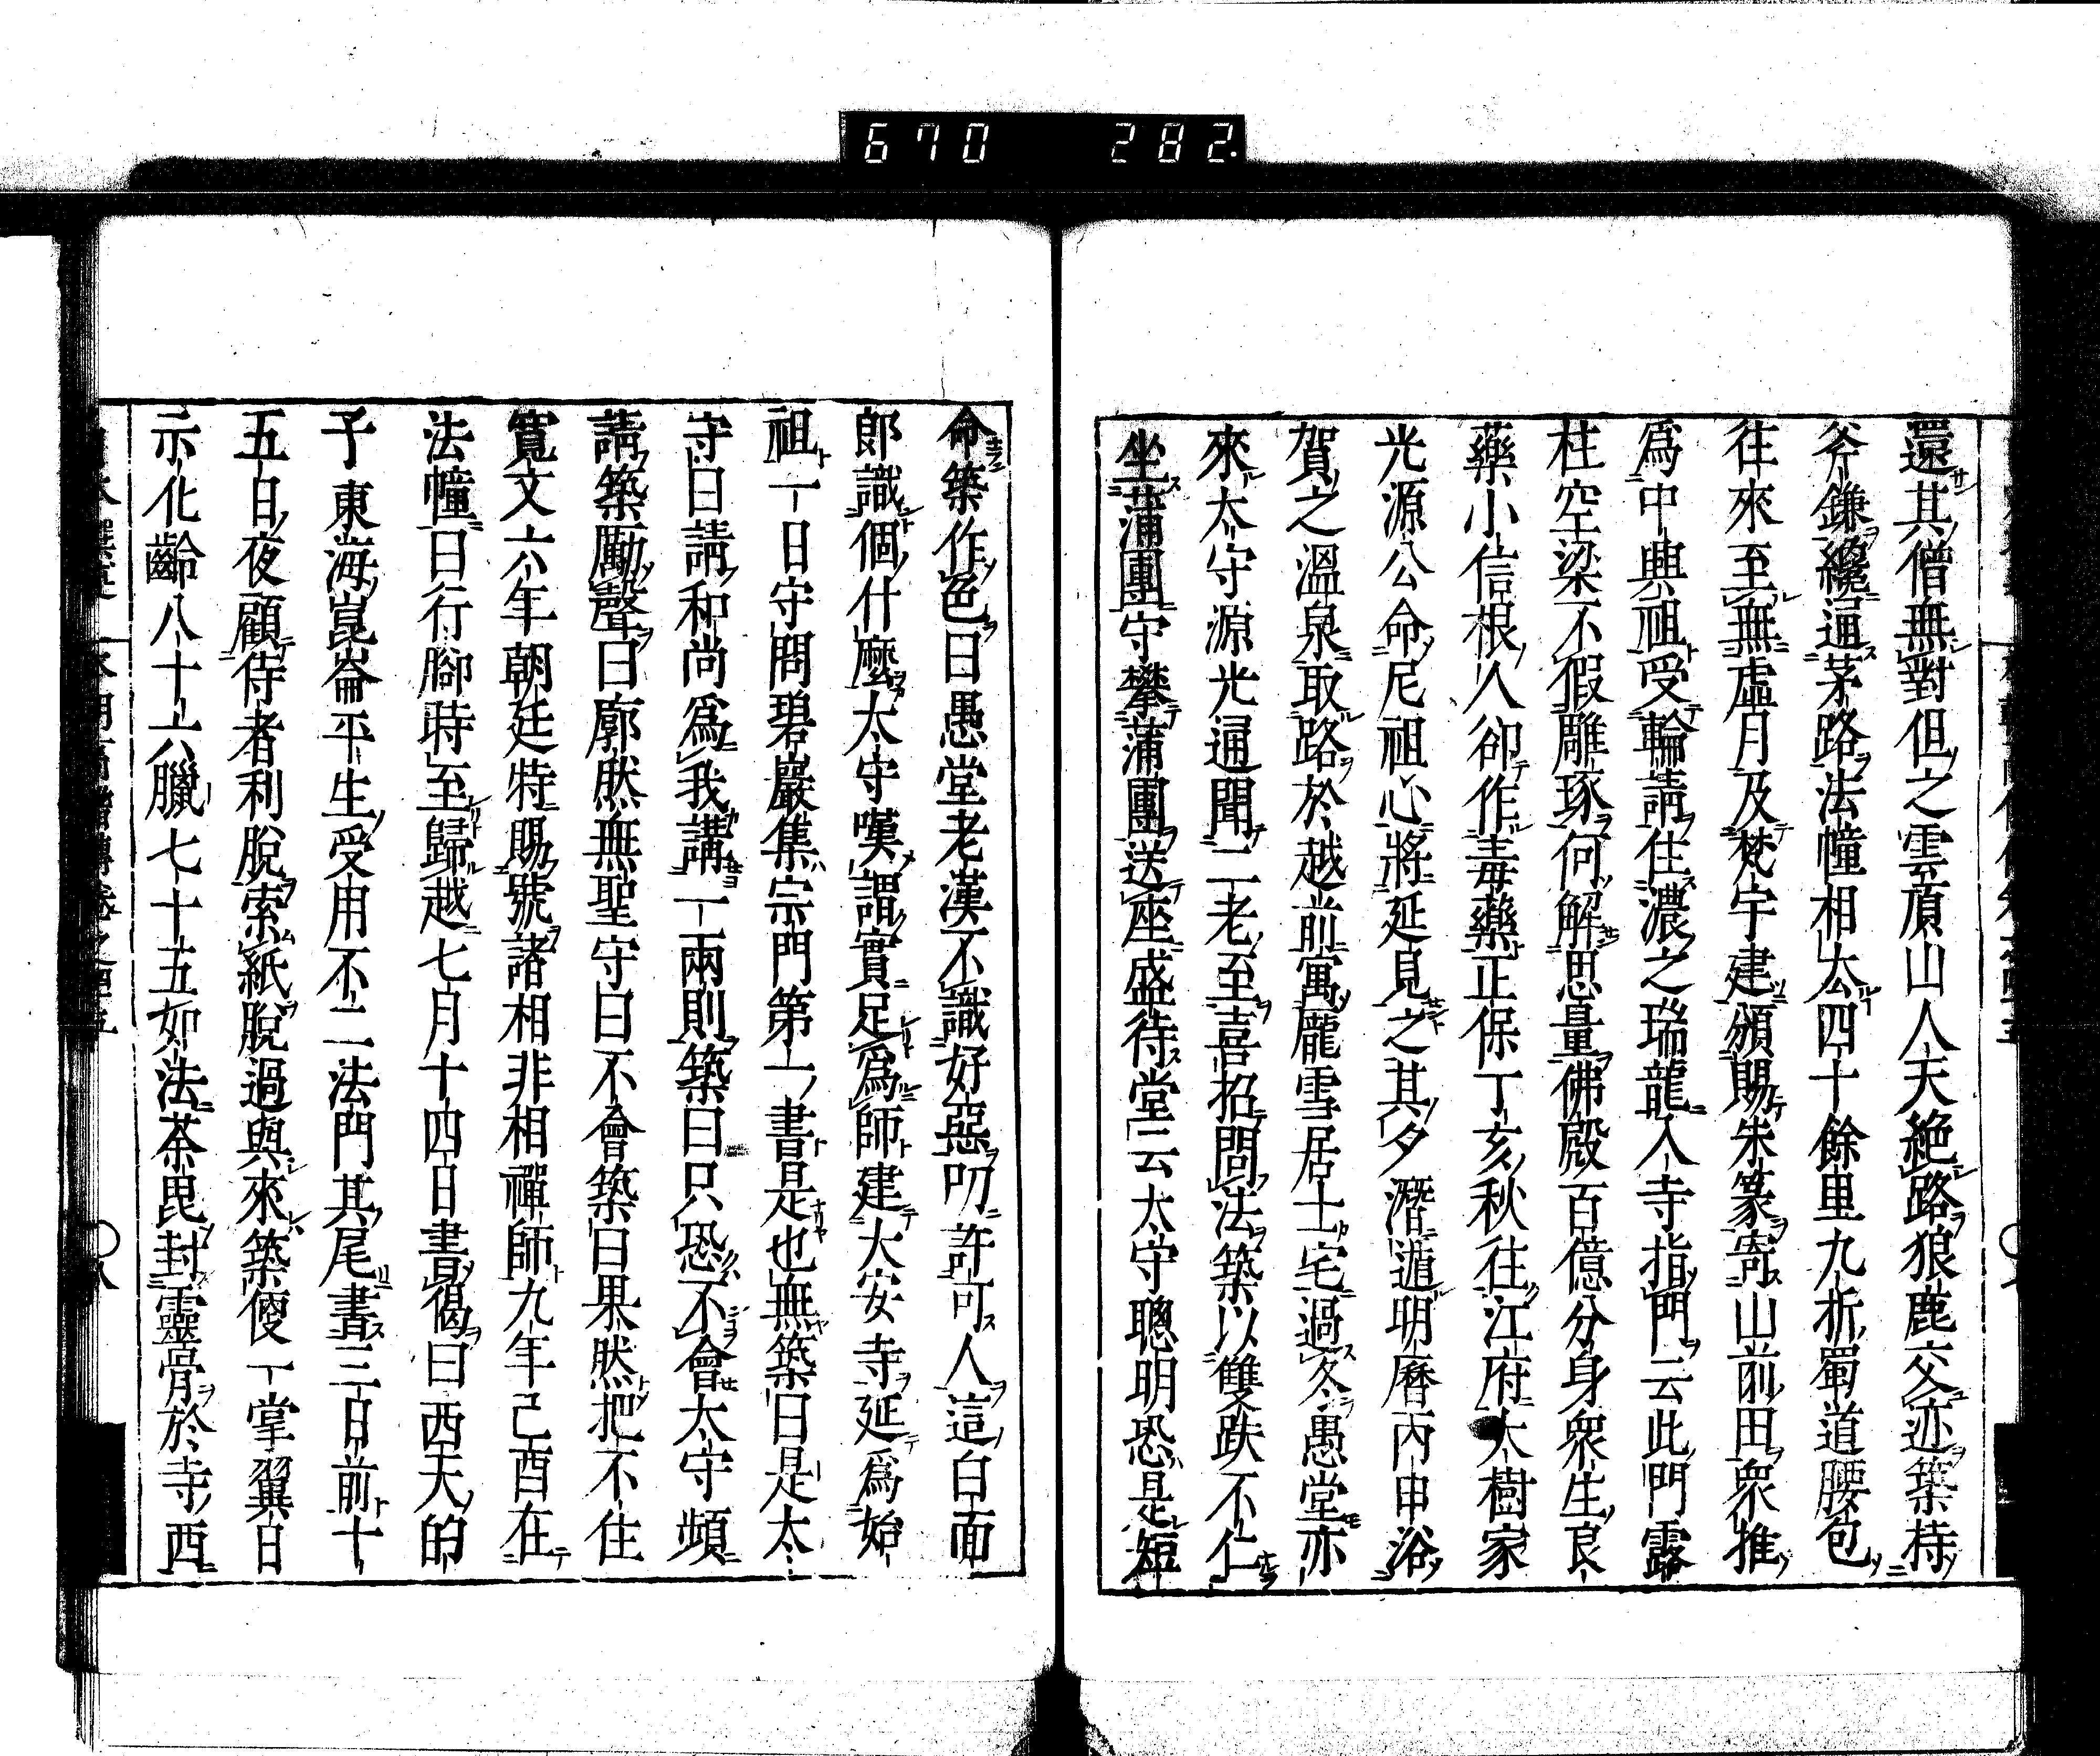 670 282.
還其僧無對但之雲頂山人天絶路狼鹿交迹築持
斧鎌纔通茅路法幢相去四十餘里九折蜀道腰包
往來至無虚月及梵宇建頒賜朱篆寄山前田衆推
爲中興祖受輪請住濃之瑞龍入寺指門云此門露
柱空梁不假雕琢何解思量佛殿百億分身衆生良
藥小信根人卻作毒藥正保丁亥秋往江府大樹家
光源公命尼祖心將延見之其夕潛遁明曆丙申浴
賀之溫泉取路於越前寓龐雪居士宅過冬愚堂亦
來太守源光通聞二老至喜招問法築以雙趺不仁
坐蒲團守攀蒲團送座盛待堂云太守聰明恐是短
命築作色曰愚堂老漢不識好惡叨許可人這白面
郎識個什麼太守嘆謂實足爲師建大安寺延爲始
祖一日守問碧巖集宗門第一書是也無築曰是太
守曰請和尚爲我講一兩則築曰只恐不會太守頻
請築勵聲曰廓然無聖守曰不會築曰果然把不住
寬文六年朝廷特賜號諸相非相禪師九年己酉在
法幢曰行腳時至歸越七月十四日書偈曰西天的
子東海崑崙平生受用不二法門其尾書三日前十
五日夜顧侍者利脫索紙脫過與來築便一掌翼日
示化齡八十六臘七十五如法茶毘封靈骨於寺西